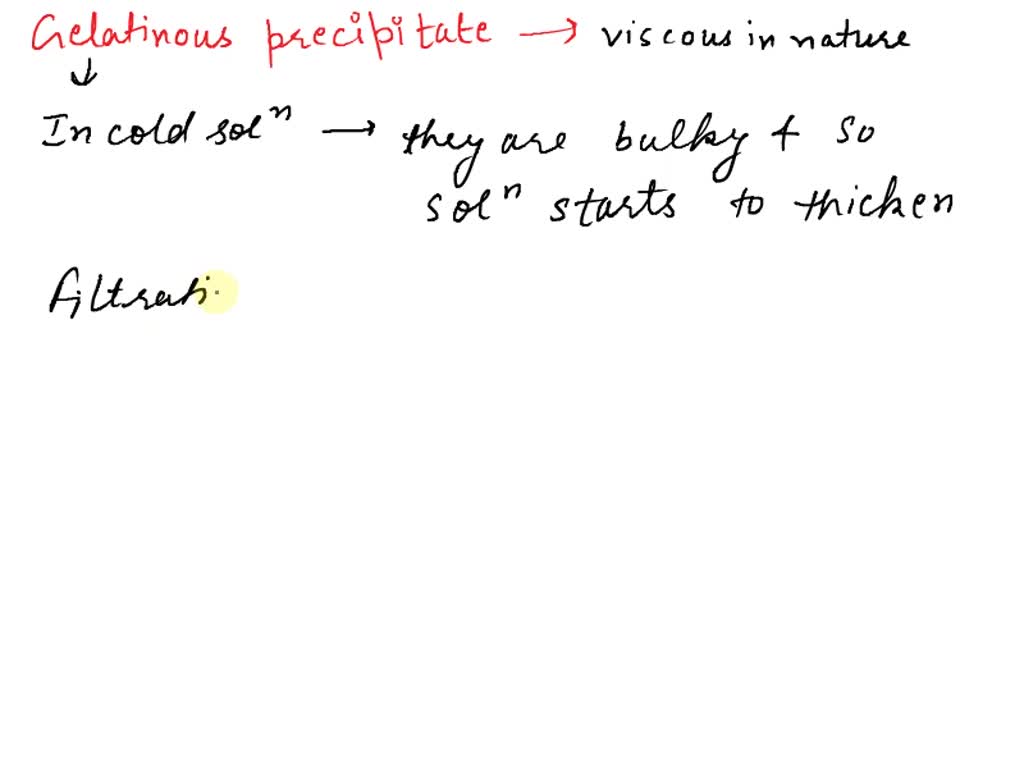 Gelatinous precipitate → viscous in nature
↓
In cold solⁿ → they are bulky + so
solⁿ starts to thicken
filtrati